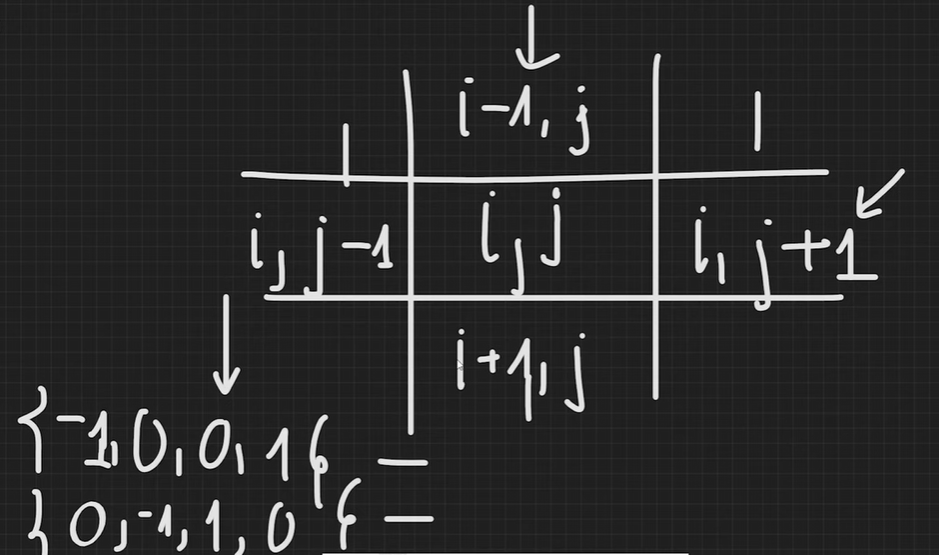 i-1, j
i, j-1 i, j i, j+1
i+1, j
{-1, 0, 0, 1}
{0, -1, 1, 0}